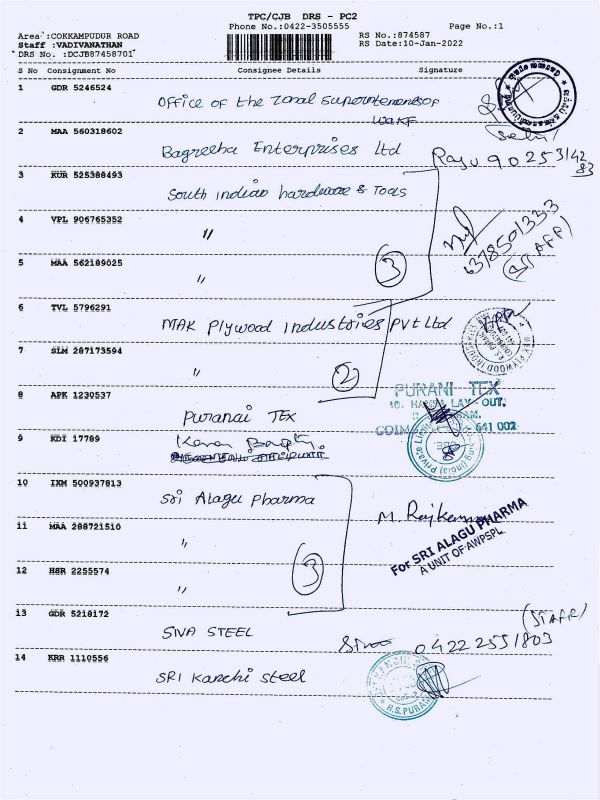 TPC/CJB DRS - PC2
Phone No.:0422-3505555
Page No.:1
Area :COKKAMPUDUR ROAD
Staff :VADIVANATHAN
DRS No. :DCJB87458701
RS No.:874587
RS Date:10-Jan-2022
S No Consignment No Consignee Details Signature
1 GDR 5246524
Office of the Zonal Superintendent of
WAKF
2 MAA 560318602
Enterprises Ltd
Raju 90 25 3142
83
3 KUR 525388493
South Indian hardware & Tools
4 VPL 906765352
"
6378501333
(STAFF)
5 MAA 562189025
"
3
6 TVL 5796291
MAK Plywood Industries Pvt Ltd
7 SLM 287173594
"
2
8 APK 1230537
Puranai TEX
PURANI TEX
LAY - OUT,
641 002
9 KDI 17789
10 IXM 500937813
Sri Alagu Pharma
M. Rajkumar
For SRI ALAGU PHARMA
A UNIT OF AWPSPL
11 MAA 288721510
"
12 HSR 2255574
"
3
13 GDR 5218172
SIVA STEEL
(STAFF)
Siva 0422 2551803
14 KRR 1110556
SRI Kanchi Steel
R.S.PURAM